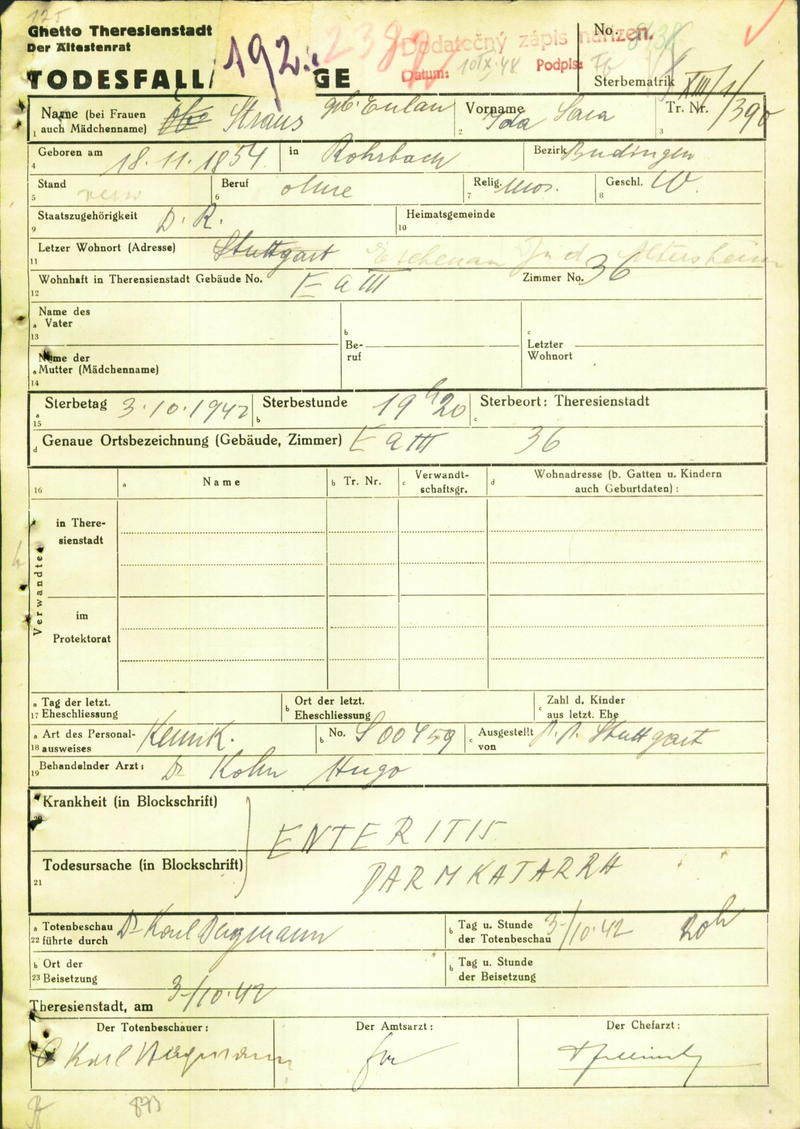 125
Ghetto Theresienstadt
Der Ältestenrat
192.
2382
Dodatečný zápis nařízen.
Datum: 10/IX.48 Podpis:
No.
TODESFALL GE
Sterbematrik XIII/1/390
Name (bei Frauen auch Mädchenname) Straus geb. Eulau
1
Vorname Ida Sara
2
Tr. Nr.
3
Geboren am 18.11.1854 in Rohrbach Bezirk Büdingen
4
Stand Beruf ohne Relig. mos. Geschl. W.
5 6 7 8
Staatszugehörigkeit D. R. Heimatsgemeinde
9 10
Letzer Wohnort (Adresse) Stuttgart Eschenau Jüd. Altersheim
11
Wohnhaft in Therensienstadt Gebäude No. E a III Zimmer No. 36
12
Name des Vater
a
13
b
Beruf
c
Letzter Wohnort
Name der Mutter (Mädchenname)
a
14
Sterbetag 3.10.1942 Sterbestunde 19 h 20 Sterbeort: Theresienstadt
a
15 b c
Genaue Ortsbezeichnung (Gebäude, Zimmer) E a III 36
d
16 a Name b Tr. Nr. c Verwandtschaftsgr. d Wohnadresse (b. Gatten u. Kindern auch Geburtdaten) :
Verwandte
in Theresienstadt
im Protektorat
a Tag der letzt. b Ort der letzt. c Zahl d. Kinder
17 Eheschliessung Eheschliessung aus letzt. Ehe
a Art des Personal- Kennk. b No. S 00459 c Ausgestellt P. P. Stuttgart
18 ausweises von
Behandelnder Arzt: Dr Kohn Hugo
19
Krankheit (in Blockschrift)
20
ENTERITIS
Todesursache (in Blockschrift)
21
DARMKATARRH
a Totenbeschau Dr Karl Bergmann b Tag u. Stunde 3/10.42 20h
22 führte durch der Totenbeschau
b Ort der b Tag u. Stunde
23 Beisetzung der Beisetzung
Theresienstadt, am 3/10.42
Der Totenbeschauer: Der Amtsarzt: Der Chefarzt:
Karl Bergmann
893